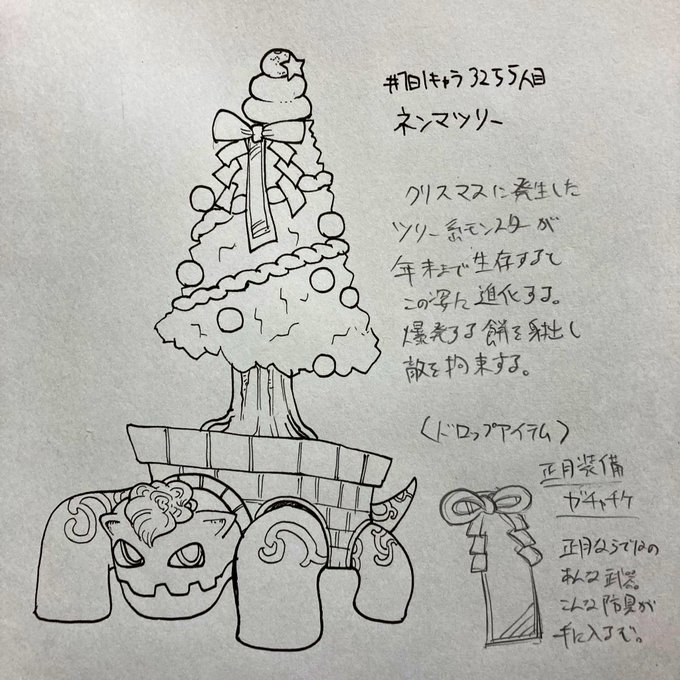 #1日1キャラ 3255人目
ネンマツリー
クリスマスに発生した
ツリー系モンスターが
年末まで生存すると
この姿に進化する。
爆発する餅を射出し
敵を拘束する。
〈ドロップアイテム〉
正月装備
ガチャチケ
正月ならではの
あんな武器。
こんな防具が
手に入るぞ。